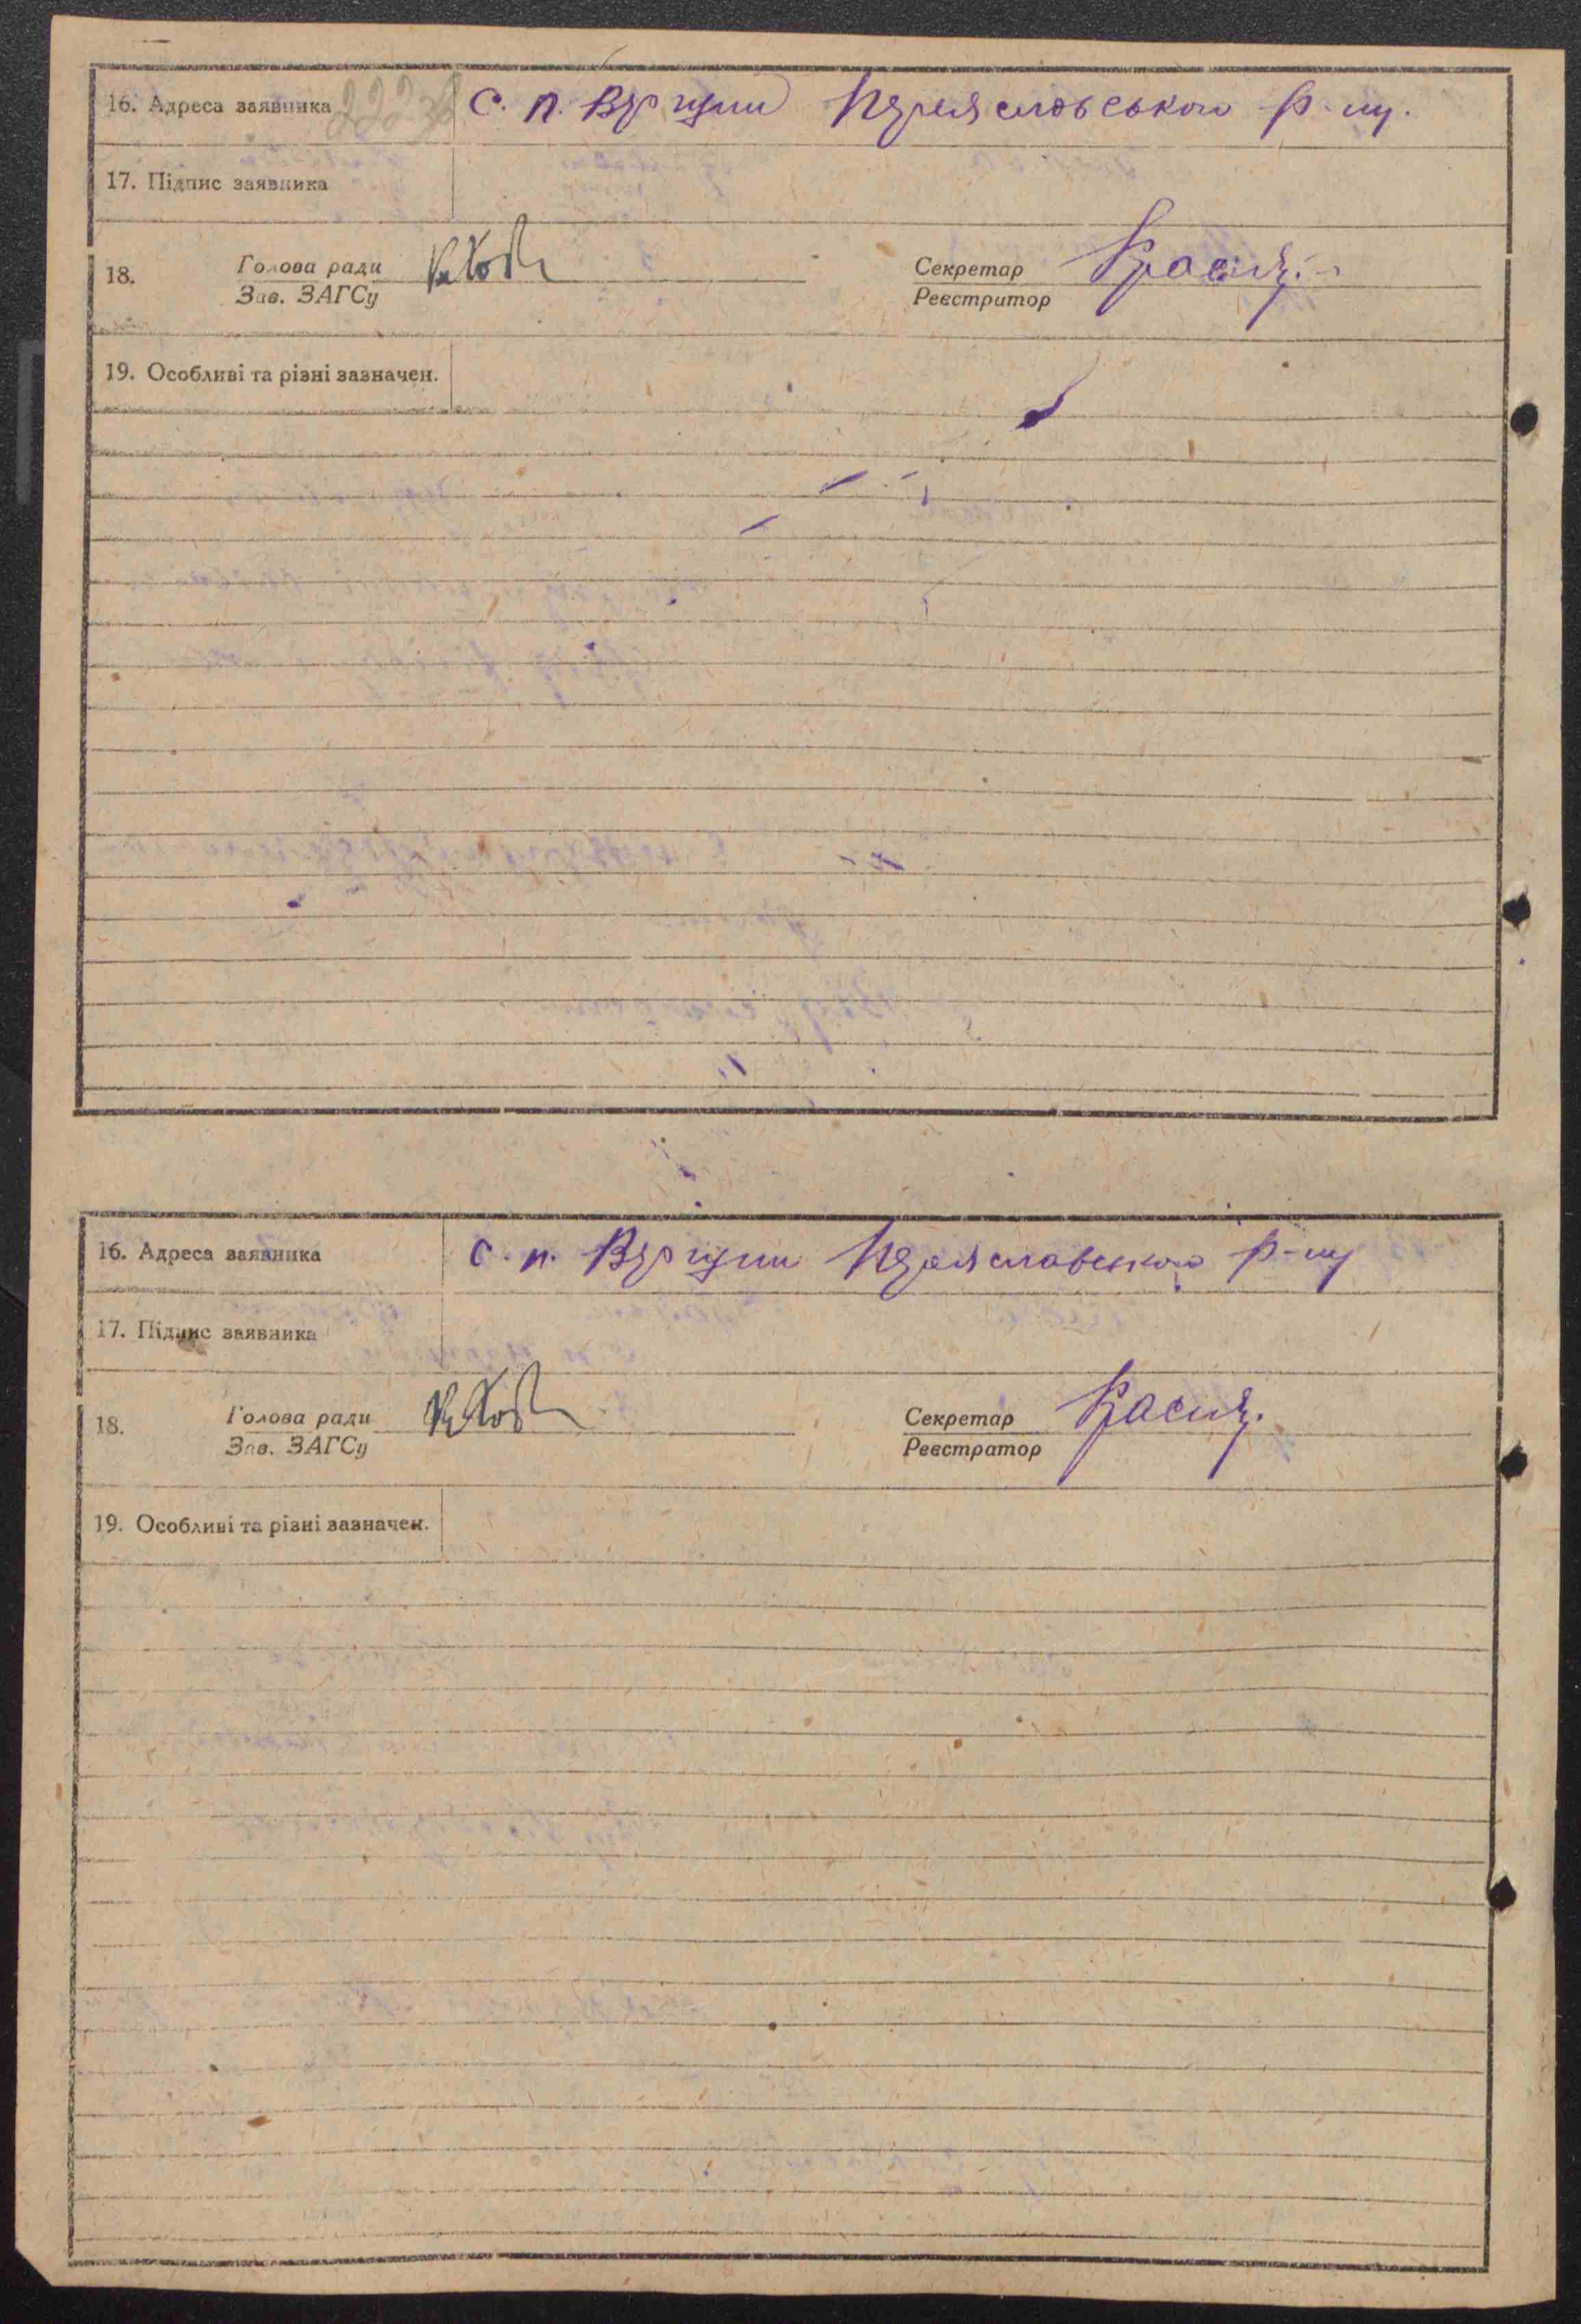 16. Адреса заявника с. п. Вергуни Переяславського р-ну.
17. Підпис заявника
18. Голова ради Секретар
Зав. ЗАГСу Реєстратор
19. Особливі та різні зазначен.
16. Адреса заявника с. п. Вергуни Переяславського р-ну
17. Підпис заявника
18. Голова ради Секретар
Зав. ЗАГСу Реєстратор
19. Особливі та різні зазначен.